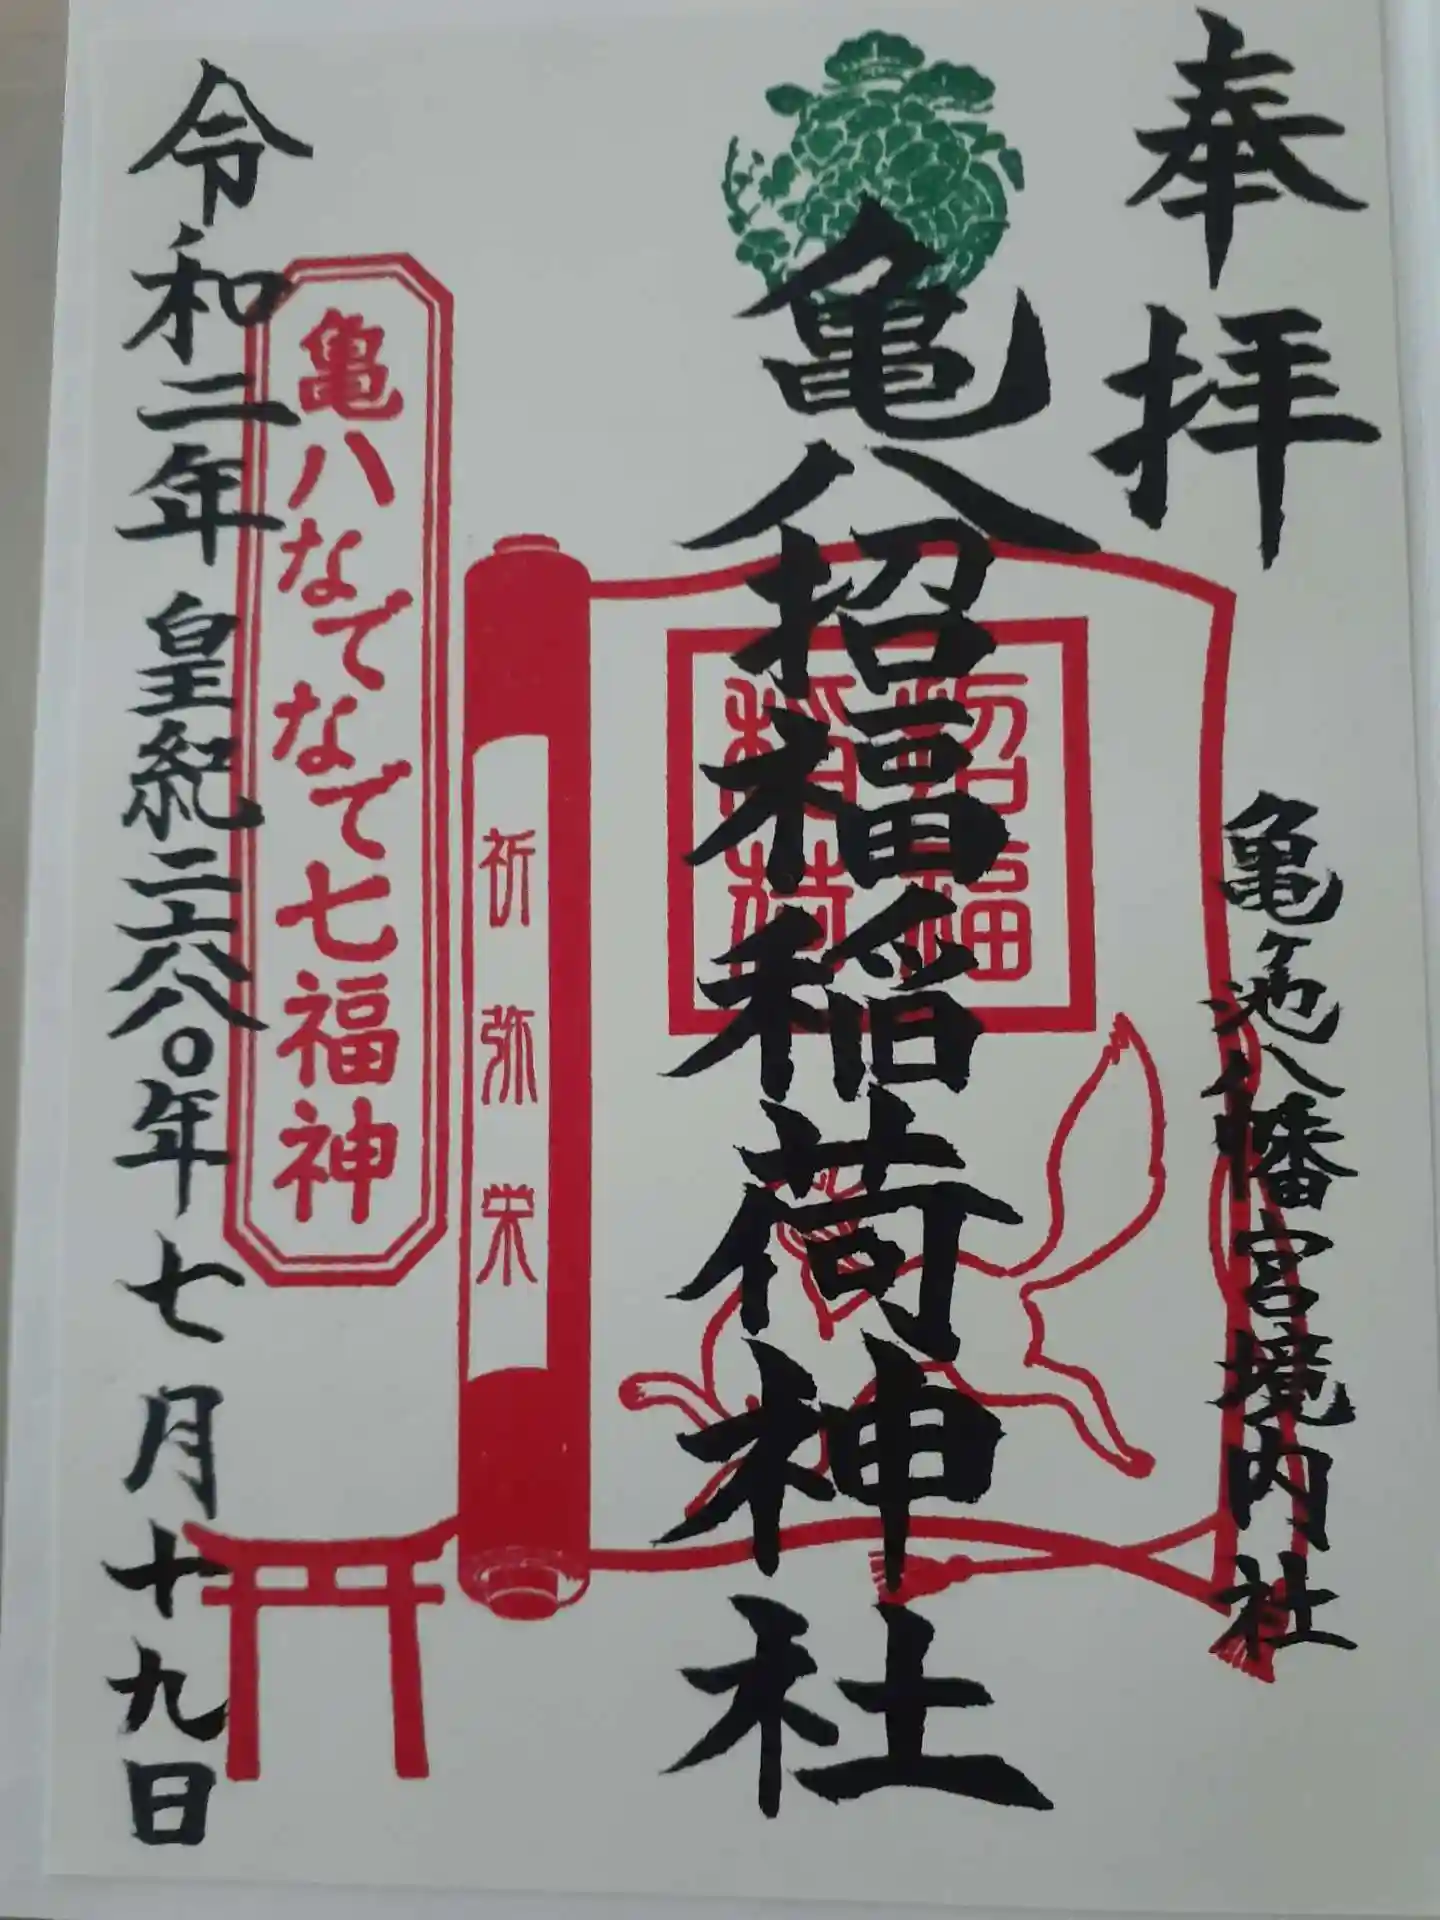 奉拝
亀ヶ池八幡宮境内社
亀八招福稲荷神社
招福
稲荷
祈弥栄
亀八なでなで七福神
令和二年 皇紀二六八〇年 七月十九日